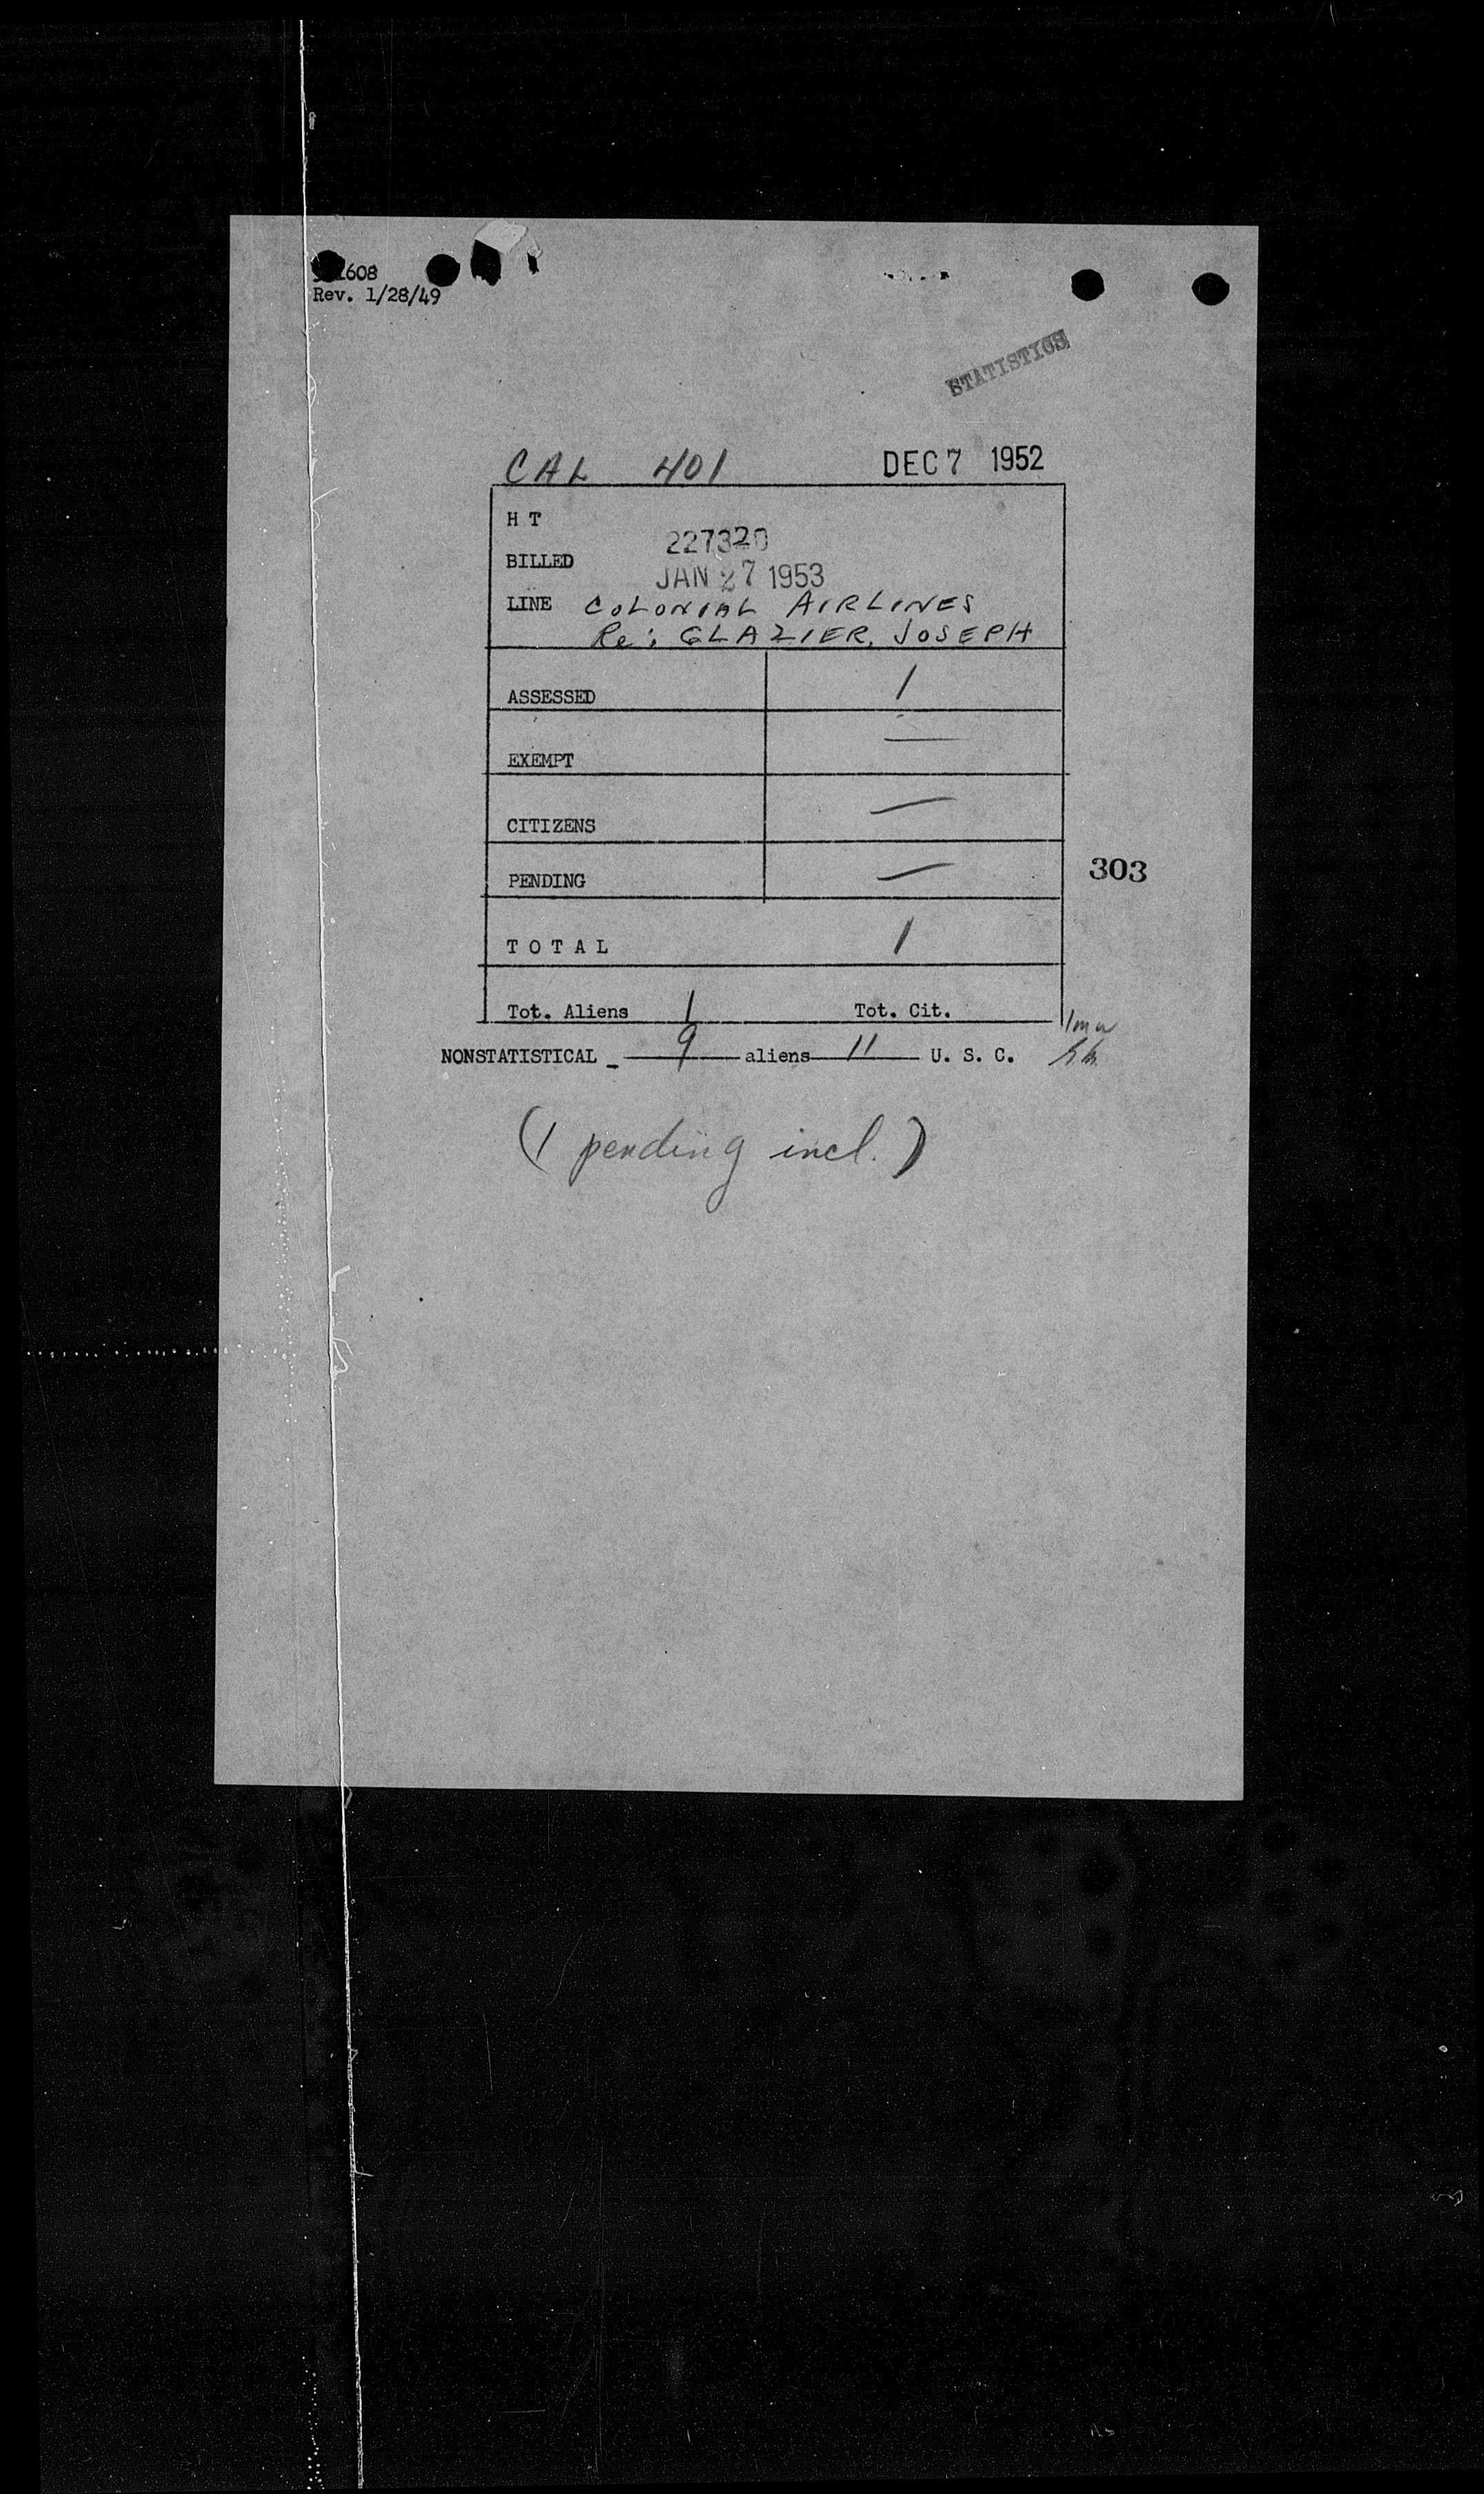 1608
Rev. 1/28/49
STATISTICS
CAL 401 DEC 7 1952
H T 227320
BILLED JAN 27 1953
LINE COLONIAL AIRLINES
Re: GLAZIER, JOSEPH
ASSESSED 1
EXEMPT —
CITIZENS —
PENDING —
303
T O T A L 1
Tot. Aliens 1 Tot. Cit.
NONSTATISTICAL - 9 aliens 11 U. S. C.
(1 pending incl.)